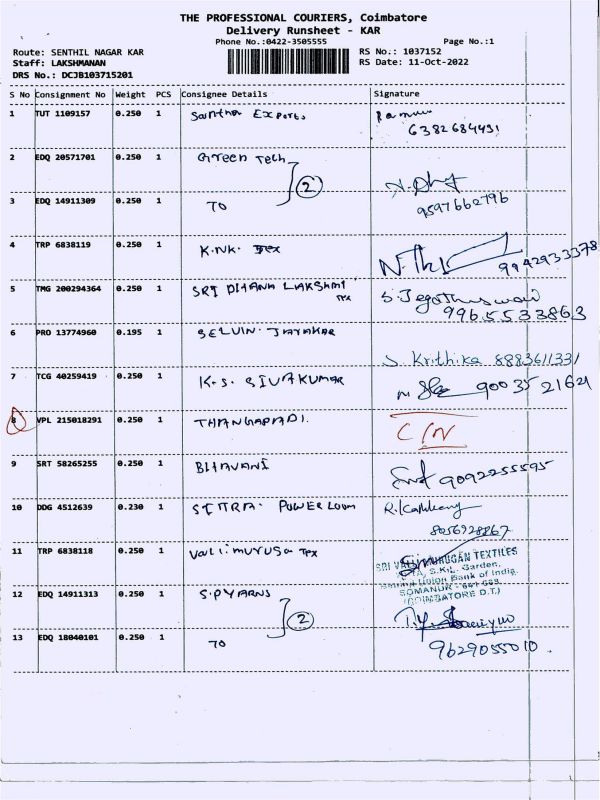 THE PROFESSIONAL COURIERS, Coimbatore
Delivery Runsheet - KAR
Phone No.:0422-3505555 Page No.:1
Route: SENTHIL NAGAR KAR RS No.: 1037152
Staff: LAKSHMANAN RS Date: 11-Oct-2022
DRS No.: DCJB103715201
S No Consignment No Weight PCS Consignee Details Signature
1 TUT 1109157 0.250 1 Santha Exports
6382684491
2 EDQ 20571701 0.250 1 Green Tech
2
3 EDQ 14911309 0.250 1 TO 9597662796
4 TRP 6838119 0.250 1 K.NK. Tex 9942933378
5 TMG 200294364 0.250 1 SRI DHANA LAKSHMI Tex
9965533863
6 PRO 13774960 0.195 1 SELVIN. JAYAKAR
S. Krithika 8883611331
7 TCG 40259419 0.250 1 K.S. SIVAKUMAR 90035 21621
8 VPL 215018291 0.250 1 THANGAPADI. C/N
9 SRT 58265255 0.250 1 BHAVANI 9092255595
10 DDG 4512639 0.230 1 SITRA. POWERLOOM
8056928867
11 TRP 6838118 0.250 1 Vallimuruga Tex
SRI VALLI MURUGAN TEXTILES
S.K.L. Garden,
Union Bank of India,
SOMANUR - 641 668.
(COIMBATORE D.T.)
12 EDQ 14911313 0.250 1 S.P YARNS
2
13 EDQ 18040101 0.250 1 TO 9629055010.